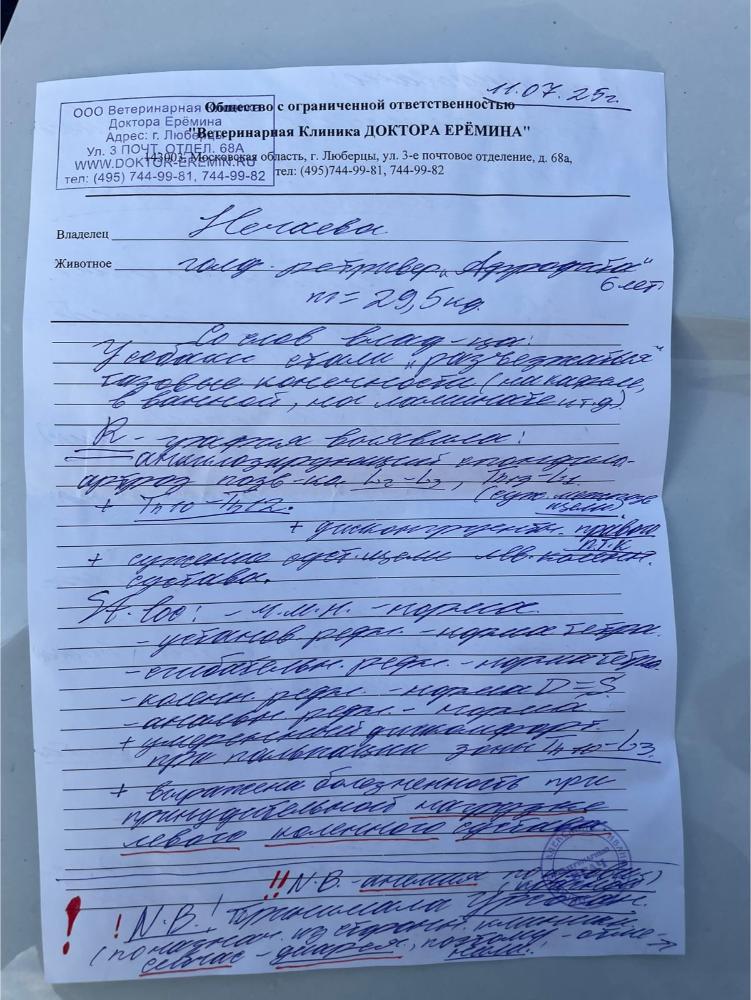 11.07.25г.
ООО Ветеринарная Клиника
Доктора Ерёмина
Адрес: г. Люберцы
Ул. 3 ПОЧТ. ОТДЕЛ. 68А
WWW.DOKTOR-EREMIN.RU
тел: (495) 744-99-81, 744-99-82
Общество с ограниченной ответственностью
"Ветеринарная Клиника ДОКТОРА ЕРЁМИНА"
143003, Московская область, г. Люберцы, ул. 3-е почтовое отделение, д. 68а,
тел: (495)744-99-81, 744-99-82
Владелец Нечаева
Животное голд. ретривер „Афродита“
6 лет.
m = 29,5 кг.
Со слов влад-ца:
У собаки стали „разъезжаться“
тазовые конечности (на кафеле,
в ванной, на ламинате и т.д)
R - графия выявила:
анкилозирующий спондило-
артроз позв-ка L2-L3, Th13-L1
+ Th10-Th12.
+ дисконгруентн. правого
П.Т.К
+ сужение суст. щели лев. колен.
сустава.
St. loc: - м.м.н. - норма.
- установ. рефл. - норма тетра.
- сгибательн. рефл. - норма тетра
- коленн рефл. - норма D=S.
- анальн рефл. - норма.
+ умеренный дискомфорт.
при пальпации зоны Th10-L3.
+ выражена болезненность при
принудительной нагрузке
левого коленного сустава
!! N.B. - анемия
! ! N.B.! Принимала
(по назнач. из сторонн. клиники)
сейчас - диарея, поэтому - отме-
нили!